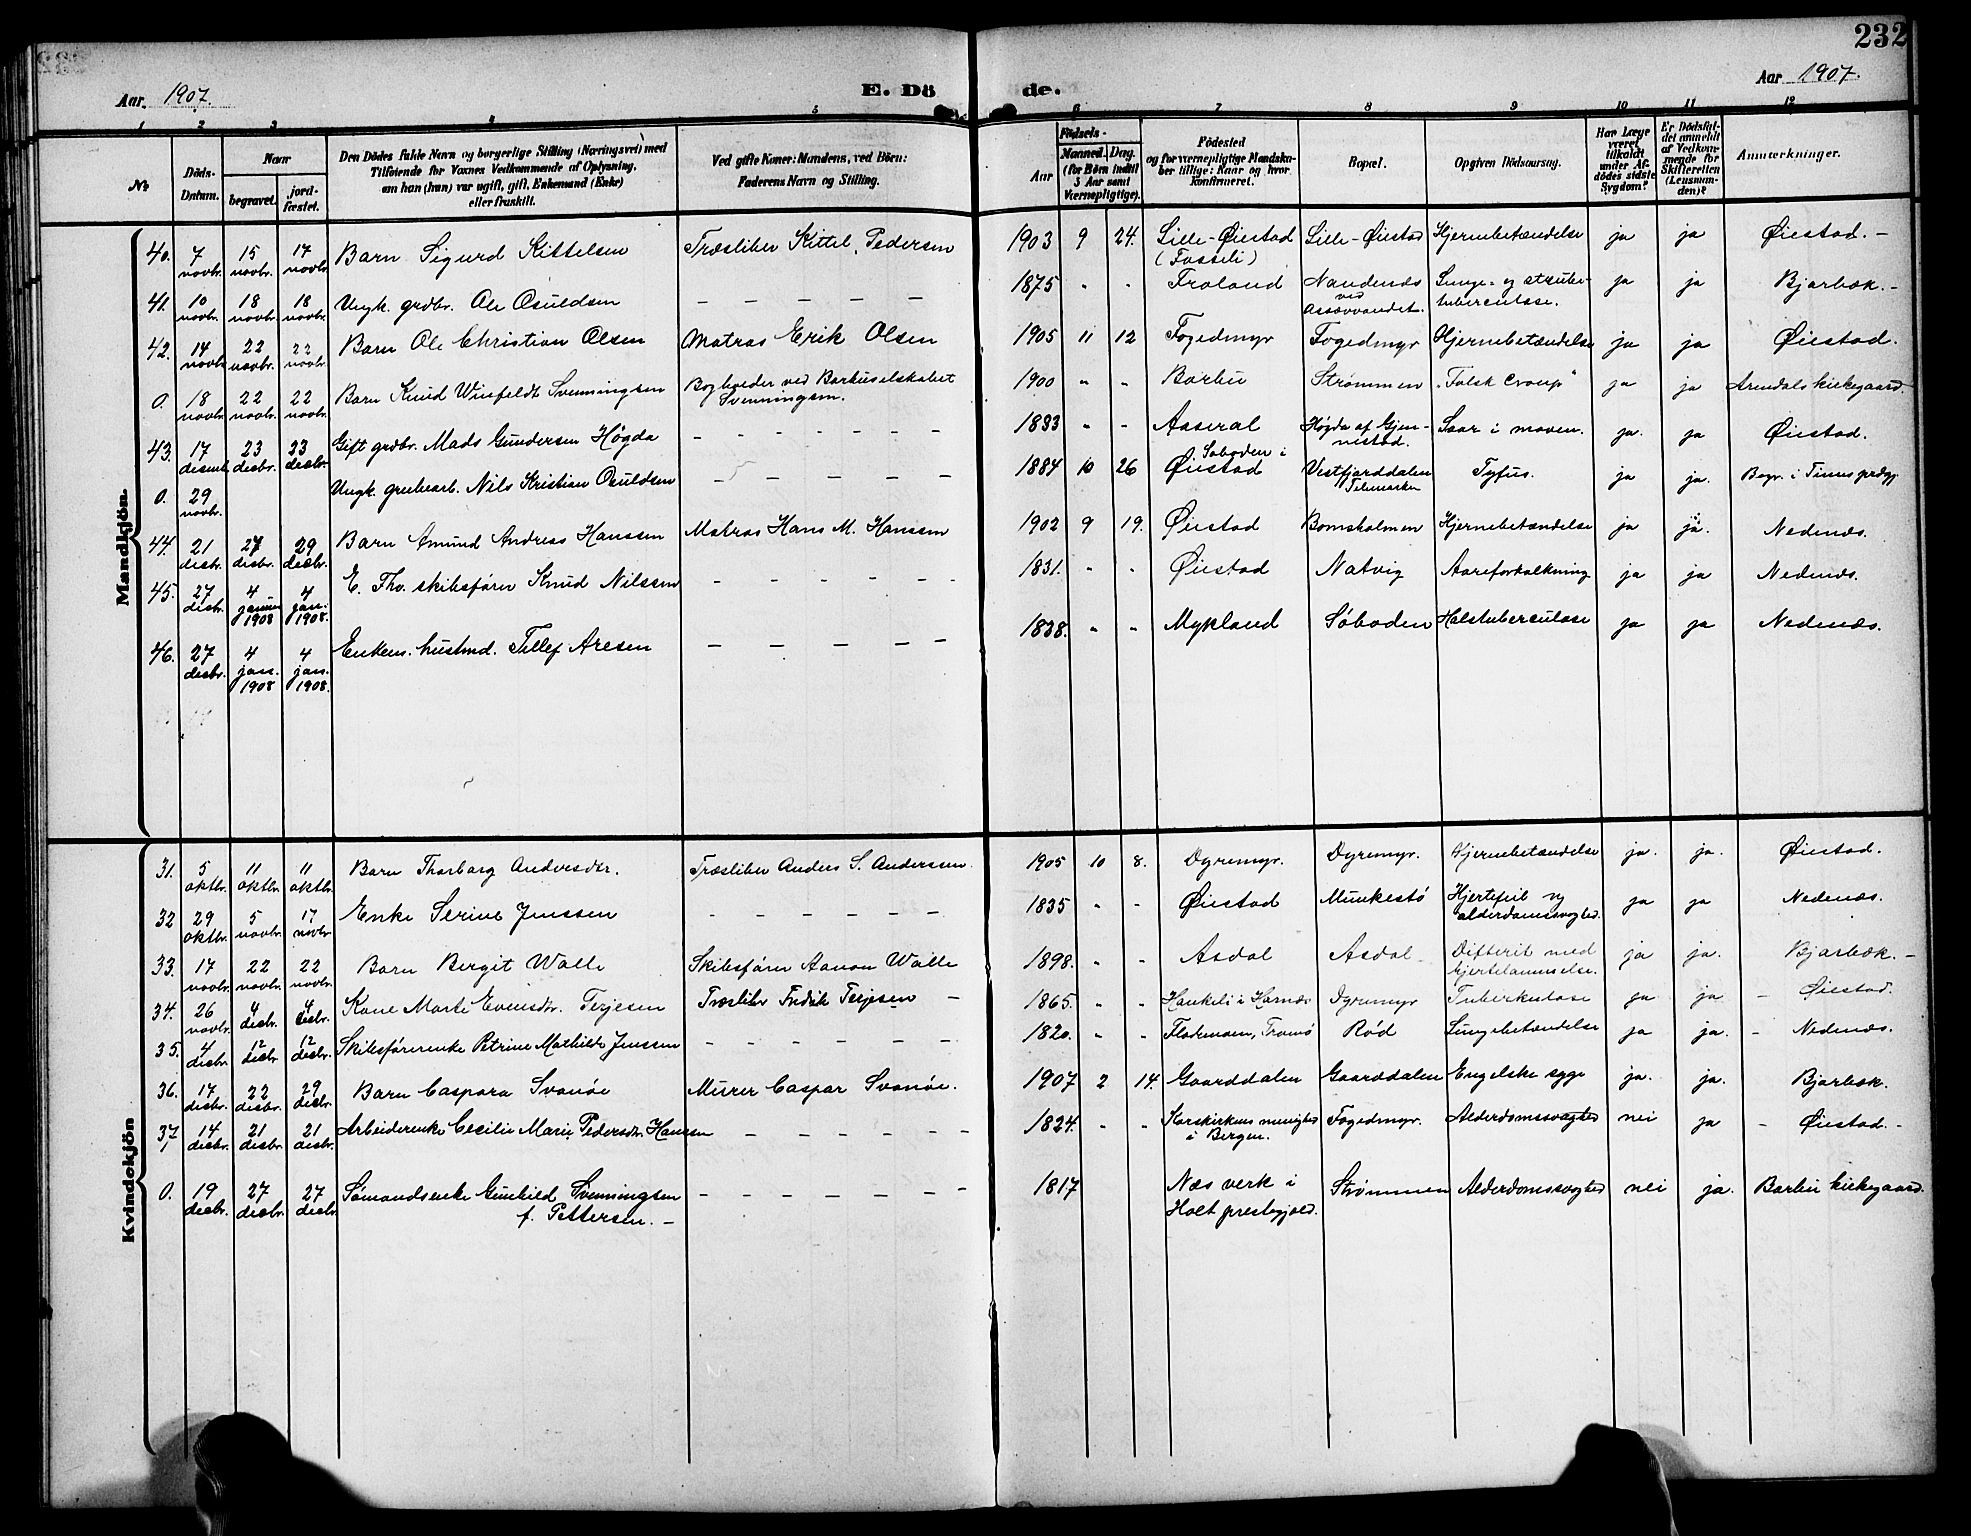 232
Aar. 1907.
E. Dö
de.
Aar 1907.
1 2 3 4 5 6 7 8 9 10 11 12
No
Döds-Datum.
Naar
begravet.
jord-fæstet.
Den Dödes fulde Navn og borgerlige Stilling (Næringsvei) med
Tilföiende for Voxnes Vedkommende af Oplysning,
om han (hun) var ugift, gift, Enkemand (Enke)
eller fraskilt.
Ved gifte Koner: Mandens, ved Börn:
Faderens Navn og Stilling.
Födsels-
Aar
Maaned. Dag.
(for Börn indtil
5 Aar samt
Værnepligtige).
Födested
og for værnepligtige Mandska-
ber tillige: Naar og hvor
konfirmeret.
Bopæl.
Opgiven Dödsaarsag.
Har Læge
været
tilkaldt
under Af-
dödes sidste
Sygdom?
Er Dödsfal-
det anmeldt
af Vedkom-
mende for
Skifteretten
(Lensman-
den)?
Anmærkninger.
Mandkjön.
40. 7 novbr. 15 novbr. 17 novbr. Barn Sigurd Kittelsen Træsliber Kittel Pedersen 1903 9 24. Lille-Øiestad (Fosseli) Lille-Øiestad Hjernebetændelse ja ja Øiestad. -
41. 10 novbr. 18 novbr. 18 novbr. Ungk. grdbr. Ole Osuldsen - - - - - 1875 " " Froland Nandenæs ved Assævvandet. Lunge- og strube-tuberculose. ja ja Bjorbæk. -
42. 14 novbr. 22 novbr. 22 novbr. Barn Ole Christian Olsen Matros Erik Olsen 1905 11 12 Fogedmyr Fogedmyr Hjernebetændelse ja ja Øiestad.
0. 18 novbr. 22 novbr. 22 novbr. Barn Knud Winfeldt Svenningsen Bogholder ved Barbuselskabet Svenningsen. 1900 " " Barbu Strømmen "Falsk Croup" ja ja Arendals kirkegaard.
43. 17 desemb. 23 desbr. 23 desbr. Gift grdbr. Mads Gundersen Høgda - - - - - - - 1833 " " Aaseral Høgda af Gjennestad. Saar i maven. ja. ja Øiestad.
0. 29 novbr. Ungk. grubearb. Nils Kristian Osuldsen - - - - - 1884 10 26 Søboden i Øiestad Vestfjorddalen Telemarken Tyfus. ja ja. Begr. i Tinns prgj.
44. 21 desbr. 27 desbr. 29 desbr. Barn Amund Andreas Hanssen Matros Hans M. Hanssen 1902 9 19. Øiestad Bomsholmen Hjernebetændelse ja ja. Nedenæs.
45. 27 desbr. 4 januar 1908 4 jan. 1908. E. Fhv. skibsfører Knud Nilssen - - - - - - 1831. " " Øiestad Natvig Aareforkalkning ja ja Nedenæs.
46. 27 desbr. 4 jan. 1908 4 jan. 1908. Enkem. husmd. Tellef Aresen - - - - - 1838. " " Mykland Søboden Halstuberculose ja ja Nedenæs.
Kvindekjön
31. 5 oktbr. 11 oktbr. 11 oktbr. Barn Thorborg Andersdtr. Træsliber Anders S. Andersen. 1905 10 8. Dyremyr. Dyremyr. Hjernebetændelse ja. ja. Øiestad.
32 29 oktbr. 5 novbr. 17 novbr. Enke Serine Jenssen - - - - - - 1835 " " Øiestad Munkestø Hjertefeil og alderdomssvaghed. ja ja Nedenæs.
33. 17 novbr. 22 novbr. 22 novbr. Barn Bergit Walle Skibsfører Aanon Walle 1898. " " Asdal Asdal Difterit med hjertelammelse. ja ja. Bjorbæk. -
34. 26 novbr. 4 desbr. 4 desbr. Kone Marte Evensdtr. Terjesen Træsliber Fredrik Terjesen - 1865. " " Haukeli i Hornæs Dyremyr Tuberkulose ja ja - Øiestad.
35. 4 desbr. 12 desbr. 12 desbr. Skibsførerenke Petrine Mathilde Jenssen - - - - - - - 1820. " " Flademoen, Tromø Rød Lungebetændelse ja ja. - Nedenæs.
36. 17 desbr. 22 desbr. 29 desbr. Barn Caspara Svanøe Murer Caspar Svanøe. 1907 2 14. Gaarddalen Gaarddalen Engelske syge ja. ja. Bjorbæk.
37, 14 desbr. 21 desbr. 21 desbr. Arbeiderenke Cecilie Marie Pedersdtr. Hansen - - - - - - 1824. " " Korskirkens menighed i Bergen. Fogedmyr. Alderdomssvaghed nei ja - Øiestad. -
0. 19 desbr. 27 desbr. 27 desbr. Sømandsenke Gunhild Svenningsen f. Pettersen. - - - - - - - 1817 Næs verk i Holt prestegjeld. Strømmen Alderdomssvaghed nei ja. Barbu kirkegaard.